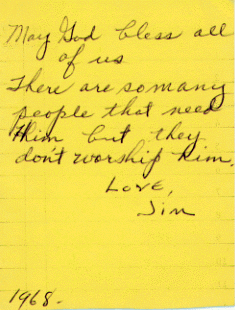 May God bless all
of us
There are so many
people that need
Him but they
don't worship him.
Love,
Jim
1968-